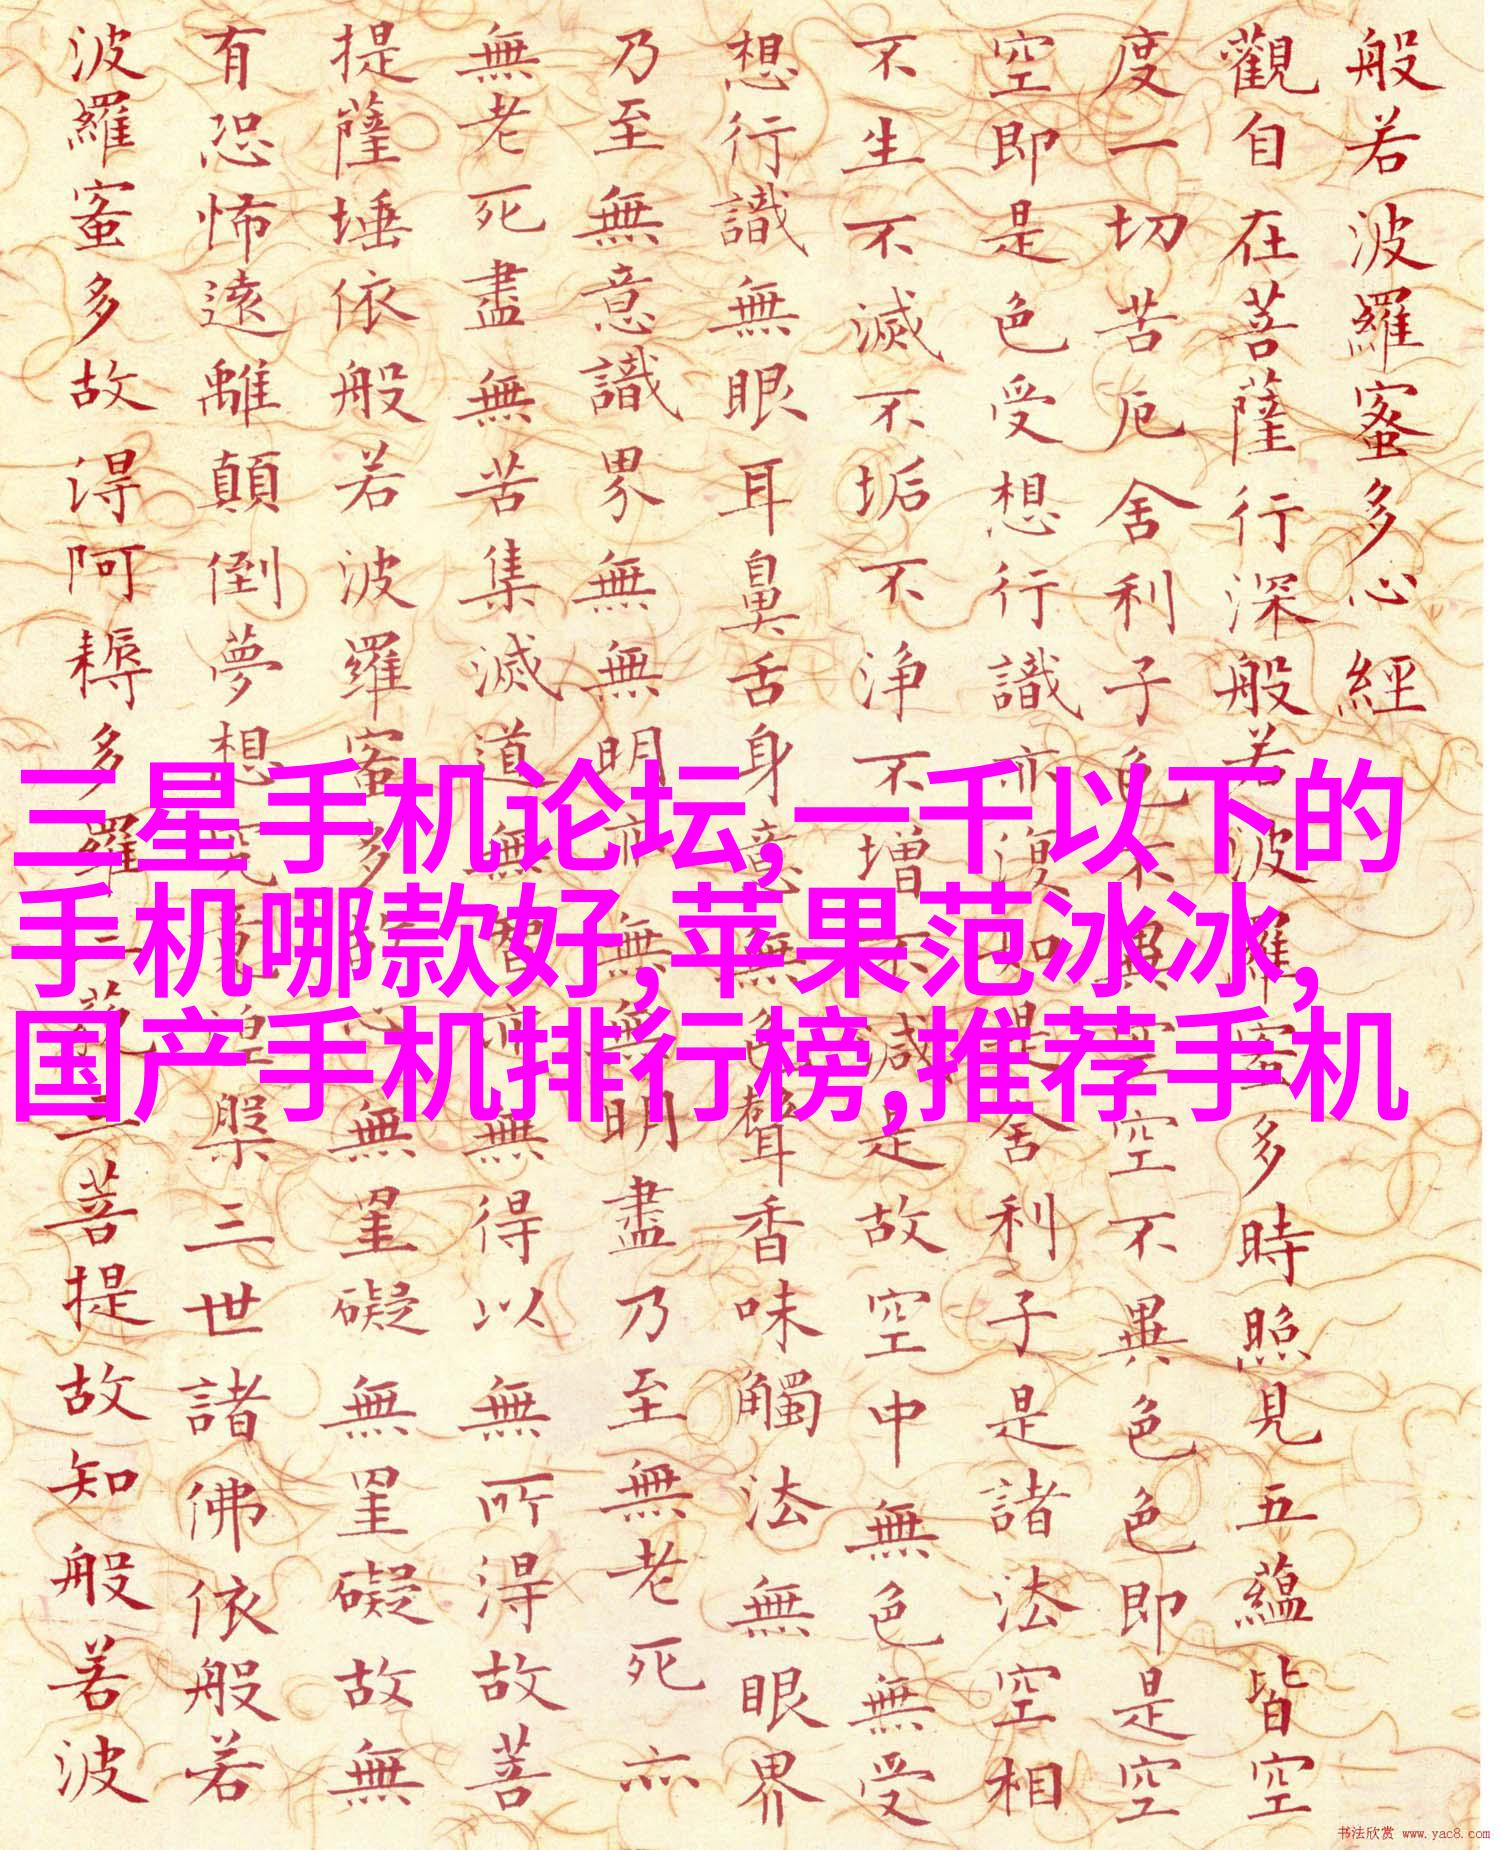 般若波羅蜜多心經
觀自在菩薩行深般若波羅蜜多時照見五蘊皆空
度一切苦厄舍利子色不異空空不異色色即是空
空即是色受想行識亦復如是舍利子是諸法空相
不生不滅不垢不淨不增不減是故空中無色無受
想行識無眼耳鼻舌身意無色聲香味觸法無眼界
乃至無意識界無無明亦無無明盡乃至無老死亦
無老死盡無苦集滅道無智亦無得以無所得故菩
提薩埵依般若波羅蜜多故心無罣礙無罣礙故無
有恐怖遠離顛倒夢想究竟涅槃三世諸佛依般若
波羅蜜多故得阿耨多羅三藐三菩提故知般若波
三星手机论坛,一千以下的
手机哪款好,苹果范冰冰,
国产手机排行榜,推荐手机
书法欣赏 www.yac8.com